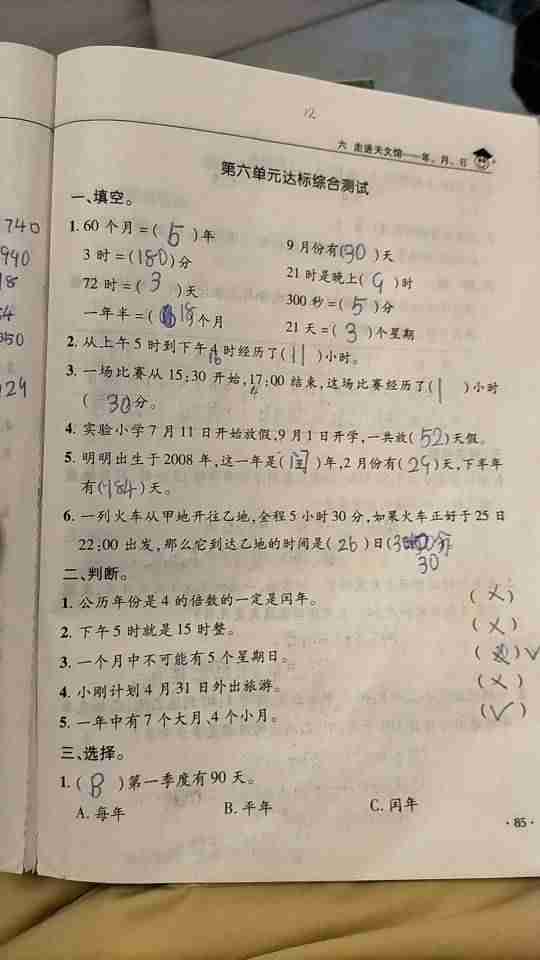 12
六 走进天文馆——年、月、日
第六单元达标综合测试
一、填空。
1. 60个月=( 5 )年
9月份有(30)天
3时=(180)分
21时是晚上( 9 )时
72时=( 3 )天
300秒=( 5 )分
一年半=( 18 )个月
21天=( 3 )个星期
2. 从上午5时到下午4时经历了( 11 )小时。
16
3. 一场比赛从15:30开始,17:00结束,这场比赛经历了( 1 )小时
( 30 )分。
4. 实验小学7月11日开始放假,9月1日开学,一共放(52)天假。
5. 明明出生于2008年,这一年是(闰)年,2月份有(29)天,下半年
有(184)天。
6. 一列火车从甲地开往乙地,全程5小时30分,如果火车正好于25日
22:00出发,那么它到达乙地的时间是( 26 )日(3
30
二、判断。
1. 公历年份是4的倍数的一定是闰年。 ( × )
2. 下午5时就是15时整。 ( × )
3. 一个月中不可能有5个星期日。 ( ) √
4. 小刚计划4月31日外出旅游。 ( × )
5. 一年中有7个大月、4个小月。 ( √ )
三、选择。
1. ( B )第一季度有90天。
A. 每年 B. 平年 C. 闰年
·85·
740
940
18
54
050
24